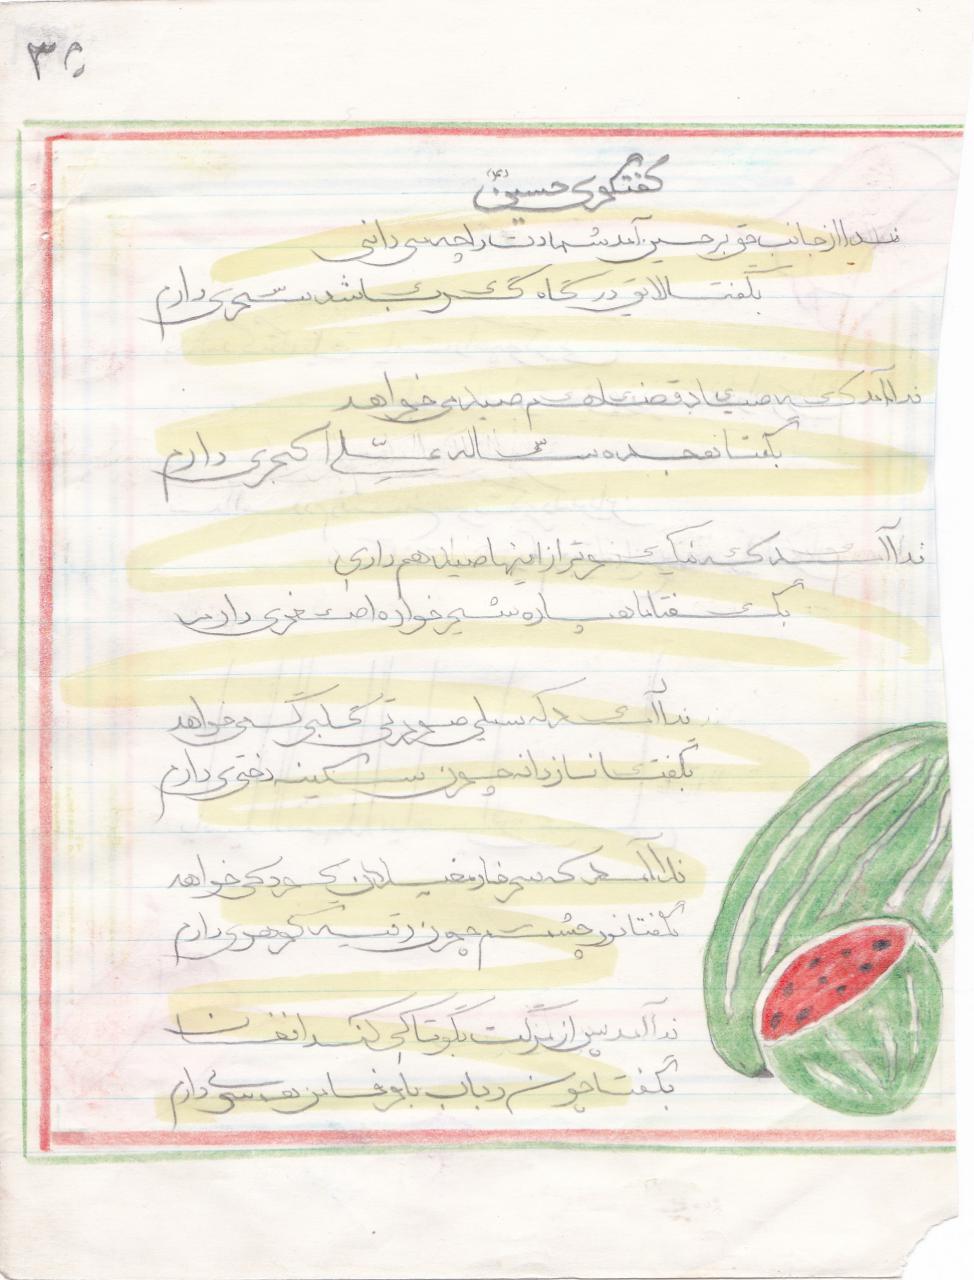 ۳۵
گفتگوی حسین (ع)
ندا از جانب حق بر حسین آمد شهادت را چه می دانی
بگفت لایق درگاه گر باشد سری دارم
ندا آمد که صیاد قضا هم صید می خواهد
بگفتا هجده ساله علی اکبری دارم
ندا آمد که نیکوتر از اینها صید هم داری
بگفتا ماهپاره شیرخواره اصغری دارم
ندا آمد که سیلی صورتی گلبرگ می خواهد
بگفتا نازدانه چون سکینه دختری دارم
ندا آمد که سر خار مغیلان کودکی خواهد
بگفتا نور چشم چون رقیه گوهری دارم
ندا آمد پس از مرگت بگو تا کی کند افغان
بگفتا چون رباب با وفا همسری دارم